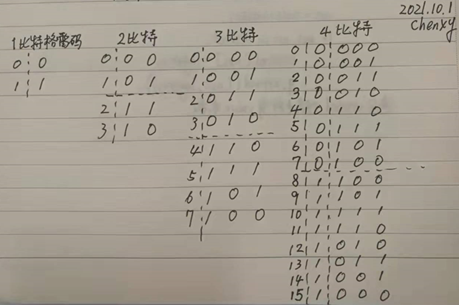 2021.10.1
chenxy
1比特格雷码
0 0
1 1
2比特
0 0 0
1 0 1
2 1 1
3 1 0
3比特
0 0 0 0
1 0 0 1
2 0 1 1
3 0 1 0
4 1 1 0
5 1 1 1
6 1 0 1
7 1 0 0
4比特
0 0 0 0 0
1 0 0 0 1
2 0 0 1 1
3 0 0 1 0
4 0 1 1 0
5 0 1 1 1
6 0 1 0 1
7 0 1 0 0
8 1 1 0 0
9 1 1 0 1
10 1 1 1 1
11 1 1 1 0
12 1 0 1 0
13 1 0 1 1
14 1 0 0 1
15 1 0 0 0